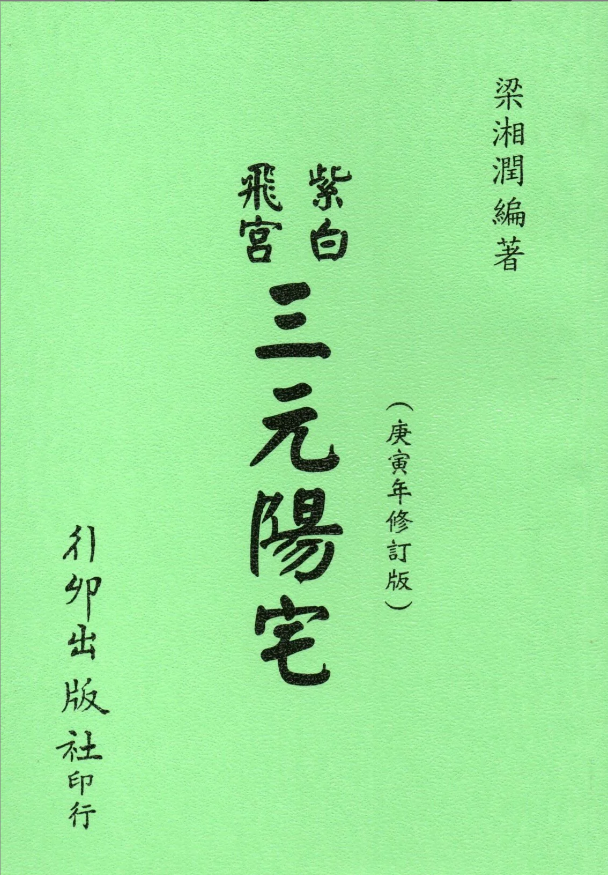 梁湘潤編著
(庚寅年修訂版)
紫白
飛宮
三元陽宅
行卯出版社印行